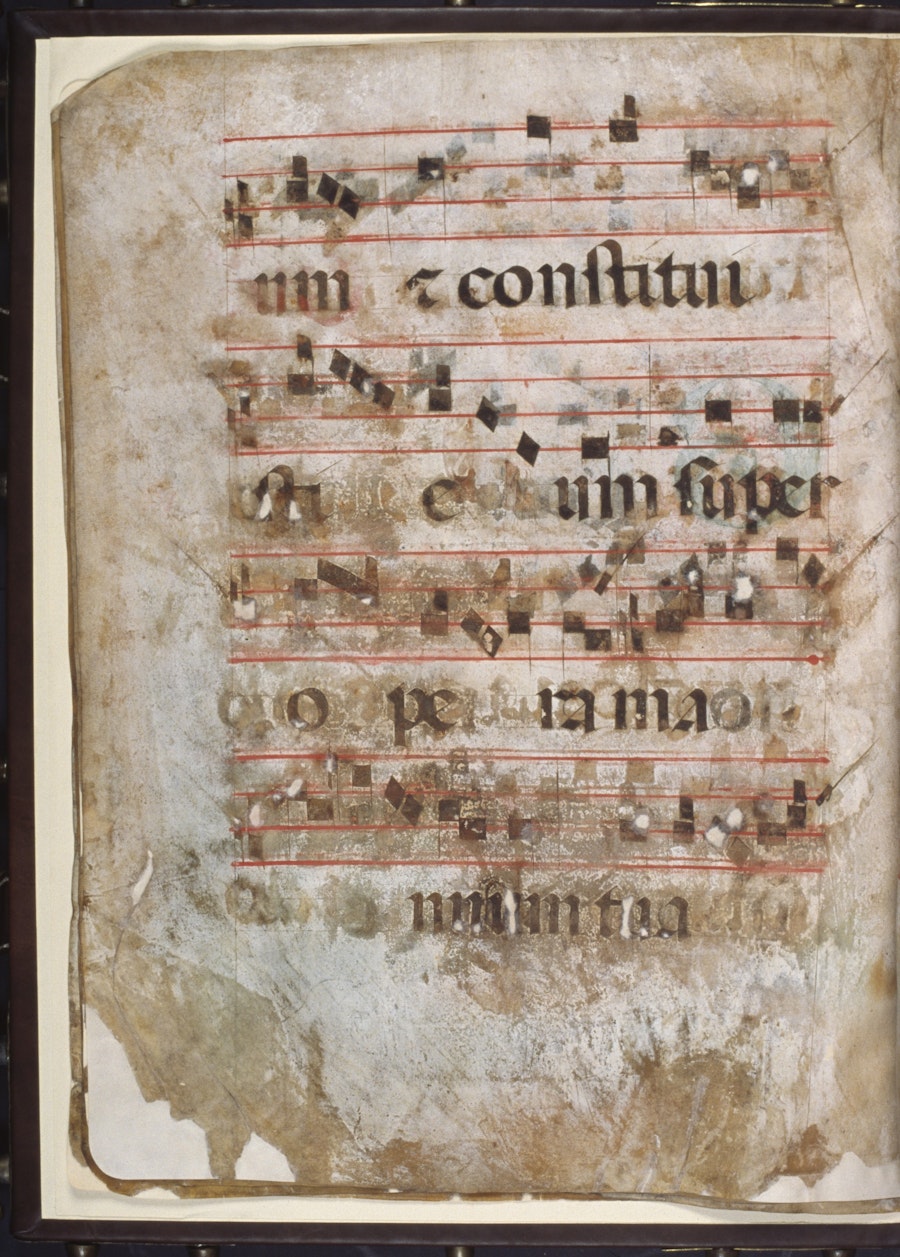 um ⁊ constitui
sti e um super
o pe ra ma o
nuum tua